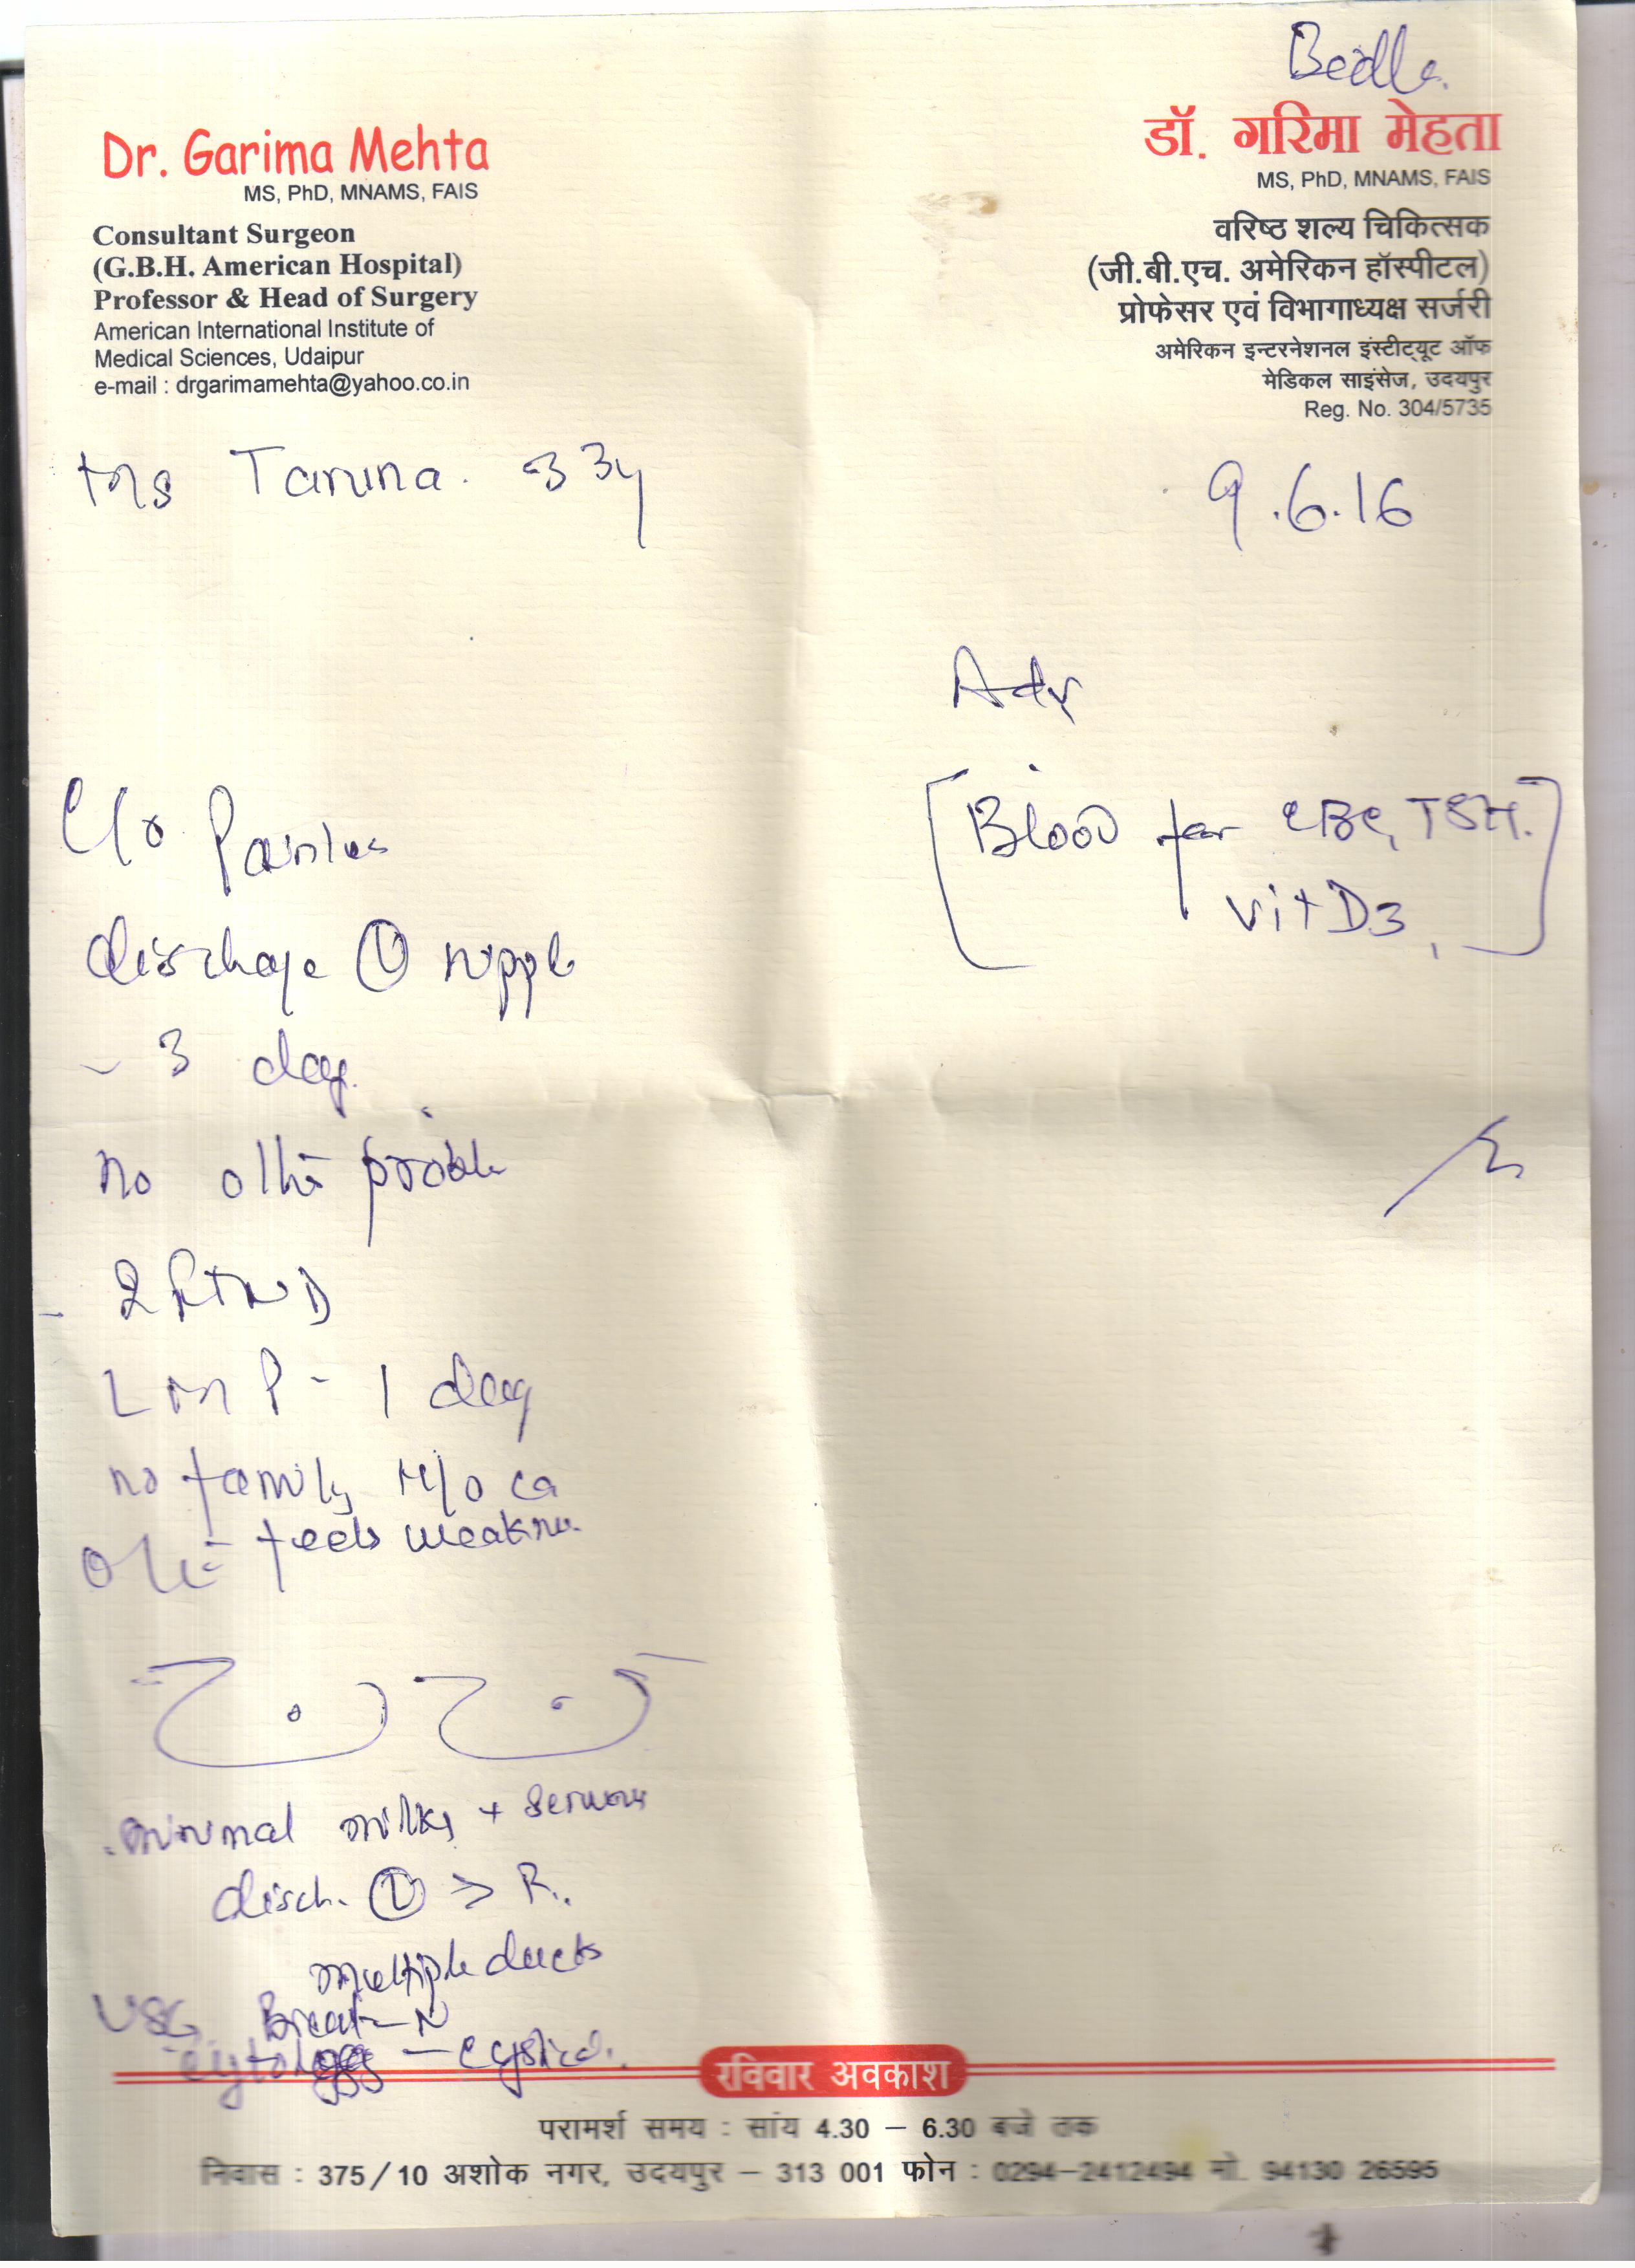 Bedla.
Dr. Garima Mehta
MS, PhD, MNAMS, FAIS
Consultant Surgeon
(G.B.H. American Hospital)
Professor & Head of Surgery
American International Institute of
Medical Sciences, Udaipur
e-mail : drgarimamehta@yahoo.co.in
डॉ. गरिमा मेहता
MS, PhD, MNAMS, FAIS
वरिष्ठ शल्य चिकित्सक
(जी.बी.एच. अमेरिकन हॉस्पीटल)
प्रोफेसर एवं विभागाध्यक्ष सर्जरी
अमेरिकन इन्टरनेशनल इंस्टीट्यूट ऑफ
मेडिकल साइंसेज, उदयपुर
Reg. No. 304/5735
Mrs Taruna. 33y
9.6.16
C/o Painless
discharge (L) nipple
- 3 day.
no other proble
- 2 FTND
LMP - 1 day
no family H/o ca
feels weakness
minimal milky + serous
disch. (L) > R.
multiple ducts
USG Breast - N
cytology -
Adv
[Blood for CBC, TSH.
Vit D3,]
रविवार अवकाश
परामर्श समय : सांय 4.30 – 6.30 बजे तक
निवास : 375/10 अशोक नगर, उदयपुर – 313 001 फोन : 0294-2412494 मो. 94130 26595